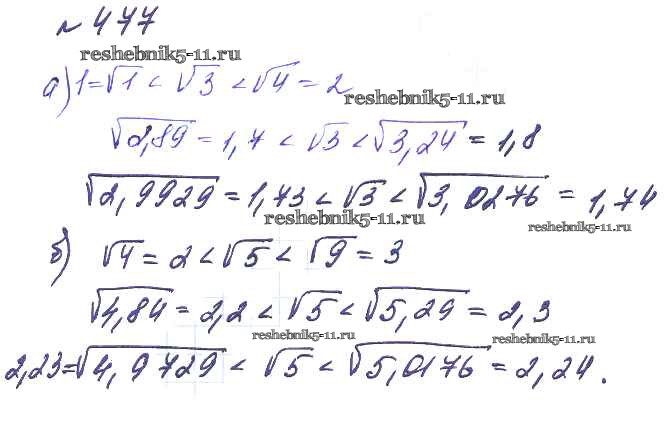 № 477
reshebnik5-11.ru
а) 1=√1 < √3 < √4 = 2
reshebnik5-11.ru
√2,89 = 1,7 < √3 < √3,24 = 1,8
√2,9929 = 1,73 < √3 < √3,0276 = 1,74
reshebnik5-11.ru
reshebnik5-11.ru
б) √4 = 2 < √5 < √9 = 3
√4,84 = 2,2 < √5 < √5,29 = 2,3
reshebnik5-11.ru
reshebnik5-11.ru
2,23=√4,9729 < √5 < √5,0176 = 2,24.